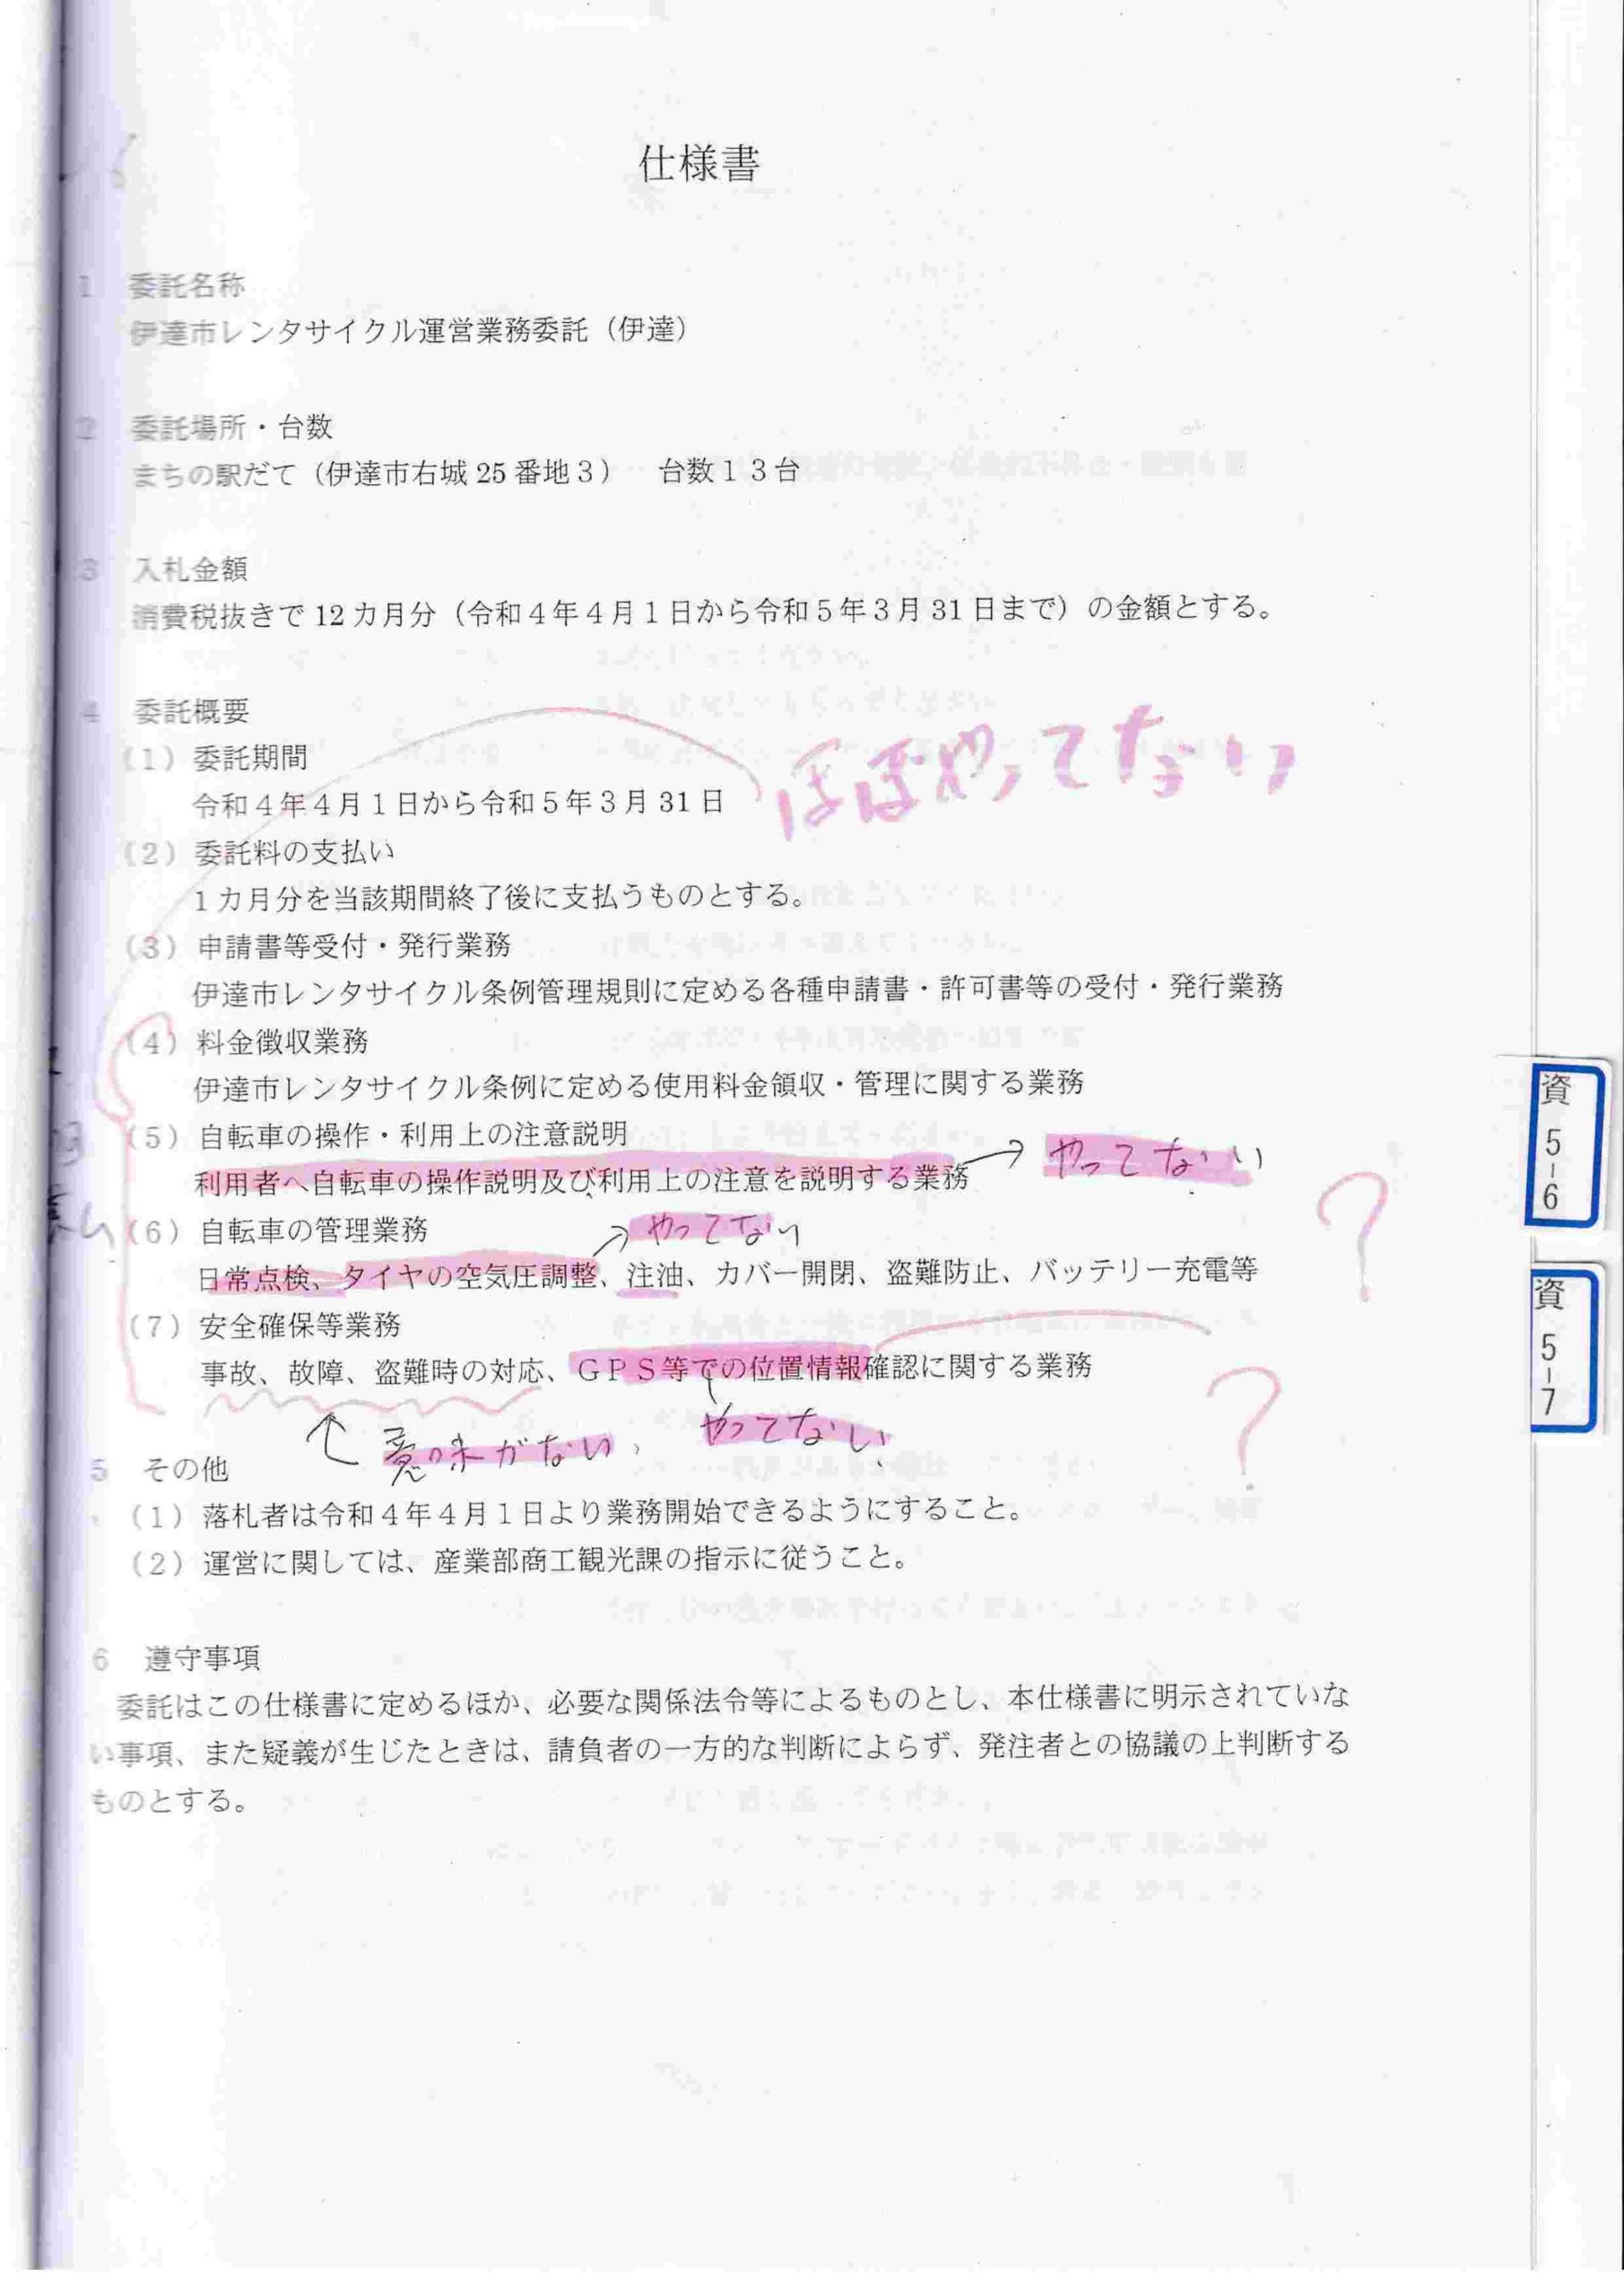 仕様書
1 委託名称
伊達市レンタサイクル運営業務委託（伊達）
2 委託場所・台数
まちの駅だて（伊達市右城 25 番地３） 台数１３台
3 入札金額
消費税抜きで 12 カ月分（令和４年４月１日から令和５年３月 31 日まで）の金額とする。
4 委託概要
（1）委託期間
令和４年４月１日から令和５年３月 31 日
ほぼやってない
（2）委託料の支払い
１カ月分を当該期間終了後に支払うものとする。
（3）申請書等受付・発行業務
伊達市レンタサイクル条例管理規則に定める各種申請書・許可書等の受付・発行業務
（4）料金徴収業務
伊達市レンタサイクル条例に定める使用料金領収・管理に関する業務
（5）自転車の操作・利用上の注意説明
利用者へ自転車の操作説明及び利用上の注意を説明する業務 → やってない
（6）自転車の管理業務 → やってない
日常点検、タイヤの空気圧調整、注油、カバー開閉、盗難防止、バッテリー充電等
?
（7）安全確保等業務
事故、故障、盗難時の対応、ＧＰＳ等での位置情報確認に関する業務
?
↑ 意味がない、 やってない、
5 その他
（1）落札者は令和４年４月１日より業務開始できるようにすること。
（2）運営に関しては、産業部商工観光課の指示に従うこと。
6 遵守事項
委託はこの仕様書に定めるほか、必要な関係法令等によるものとし、本仕様書に明示されていな
い事項、また疑義が生じたときは、請負者の一方的な判断によらず、発注者との協議の上判断する
ものとする。
資 5-6
資 5-7